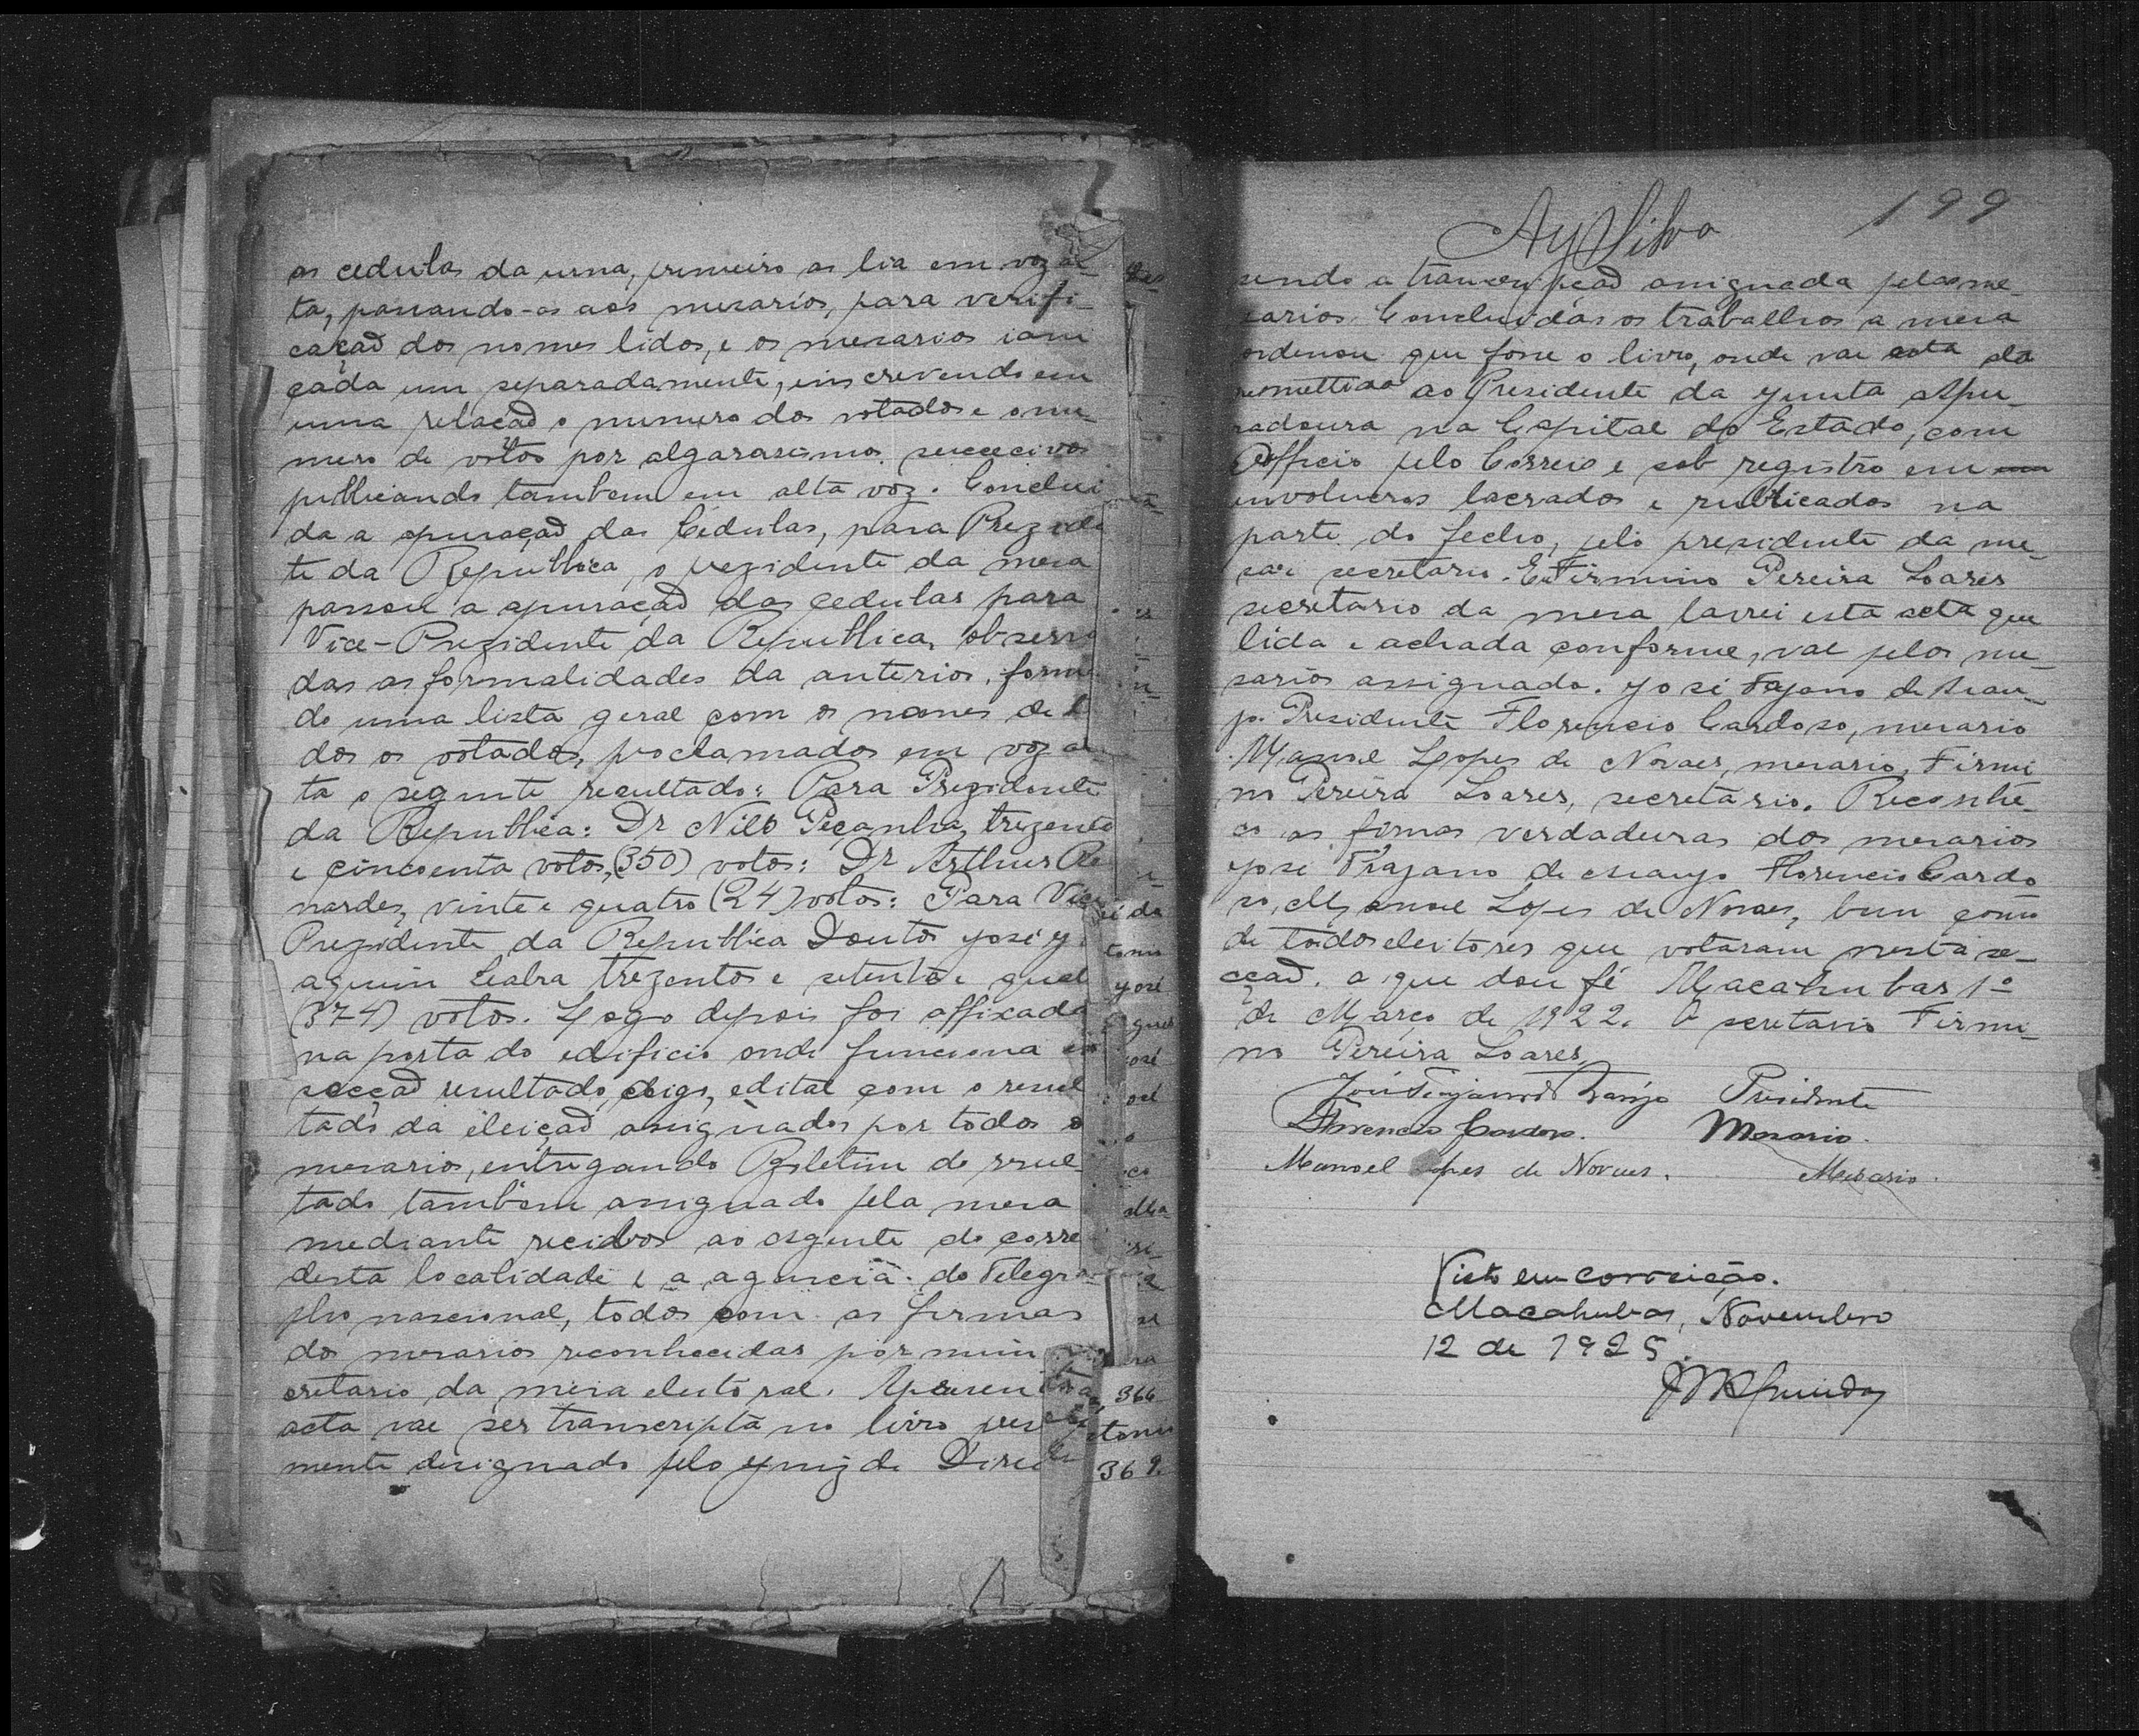 as cedulas da urna, primeiro as lia em voz al-
ta, passando-as aos mesarios, para verifi-
caçaõ dos nomes lidos, e os mesarios iam
cada um separadamente, inscrevendo em
uma relaçaõ o numero dos votados e o nu-
mero de votos por algarasimos successivos
publicando tambem em alta voz. Conclui
da a apuraçaõ das Cedulas, para Prezide
te da Republica, o prezidente da mesa
passou a apuraçaõ das cedulas para
Vice-Prezidente da Republica, observa
das as formalidades da anterior, forma
do uma lista geral com os nomes de t
dos os votados, proclamados em voz al
ta o seguinte resultado: Para Prezidente
da Republica: Dr Nilo Peçanha, trezentos
e cincoenta votos, (350) votos: Dr Arthur Be
nardes, vinte e quatro (24) votos: Para Vice
Prezidente da Republica Doutor José Jo
aquim Seabra trezentos e setenta e quat
(374) votos. Logo depois foi affixado
na porta do edificio onde funciona es
secçaõ resultado, digo, edital com o resul
tado da eleiçaõ assignados por todos os
mesarios, entregando Boletim do resul-
tado tambem assignado pela mesa
mediante recibos ao agente do corre
desta localidade e a agencia do Telegra
pho nascional, todos com as firmas
dos mesarios reconhecidas por mim
cretario da mesa eleitoral. A presen
acta vae ser transcripta no livro
mente designado pelo Juiz de Direi
tomo
José
José
366
369
199
AySilva
sendo a transcripçaõ assignada pelos me-
sarios. Concluidos os trabalhos a mesa
ordenou que fosse o livro, onde vae esta
remettido ao Presidente da Junta Apu-
radoura na Capital do Estado, com
Officio pelo Correio e sob registro em
involucros lacrados e rubricados na
parte do fecho, pelo presidente da me-
sa e secretario. Eu Firmino Pereira Soares
secretario da mesa lavrei esta acta que
lida e achada conforme, vae pelos me-
sarios assignada. José Trajano de Arau-
jo. Presidente Florencio Cardoso, mesario
Manoel Lopes de Novaes, mesario, Firmi
no Pereira Soares, secretario. Reconhe-
ço as firmas verdadeiras dos mesarios
José Trajano de Araujo Florencio Cardo
so, Manoel Lopes de Novaes, bem como
de todos eleitores que votaram nesta se-
cçaõ. o que dou fé Macahubas 1º
de Março de 1922. O secretario Firmi-
no Pereira Soares
José Trajano d Araujo Presidente
Florencio Cardoso. Mesario.
Manoel Lopes de Novaes. Mesario.
Visto em correição.
Macahubas, Novembro
12 de 1925